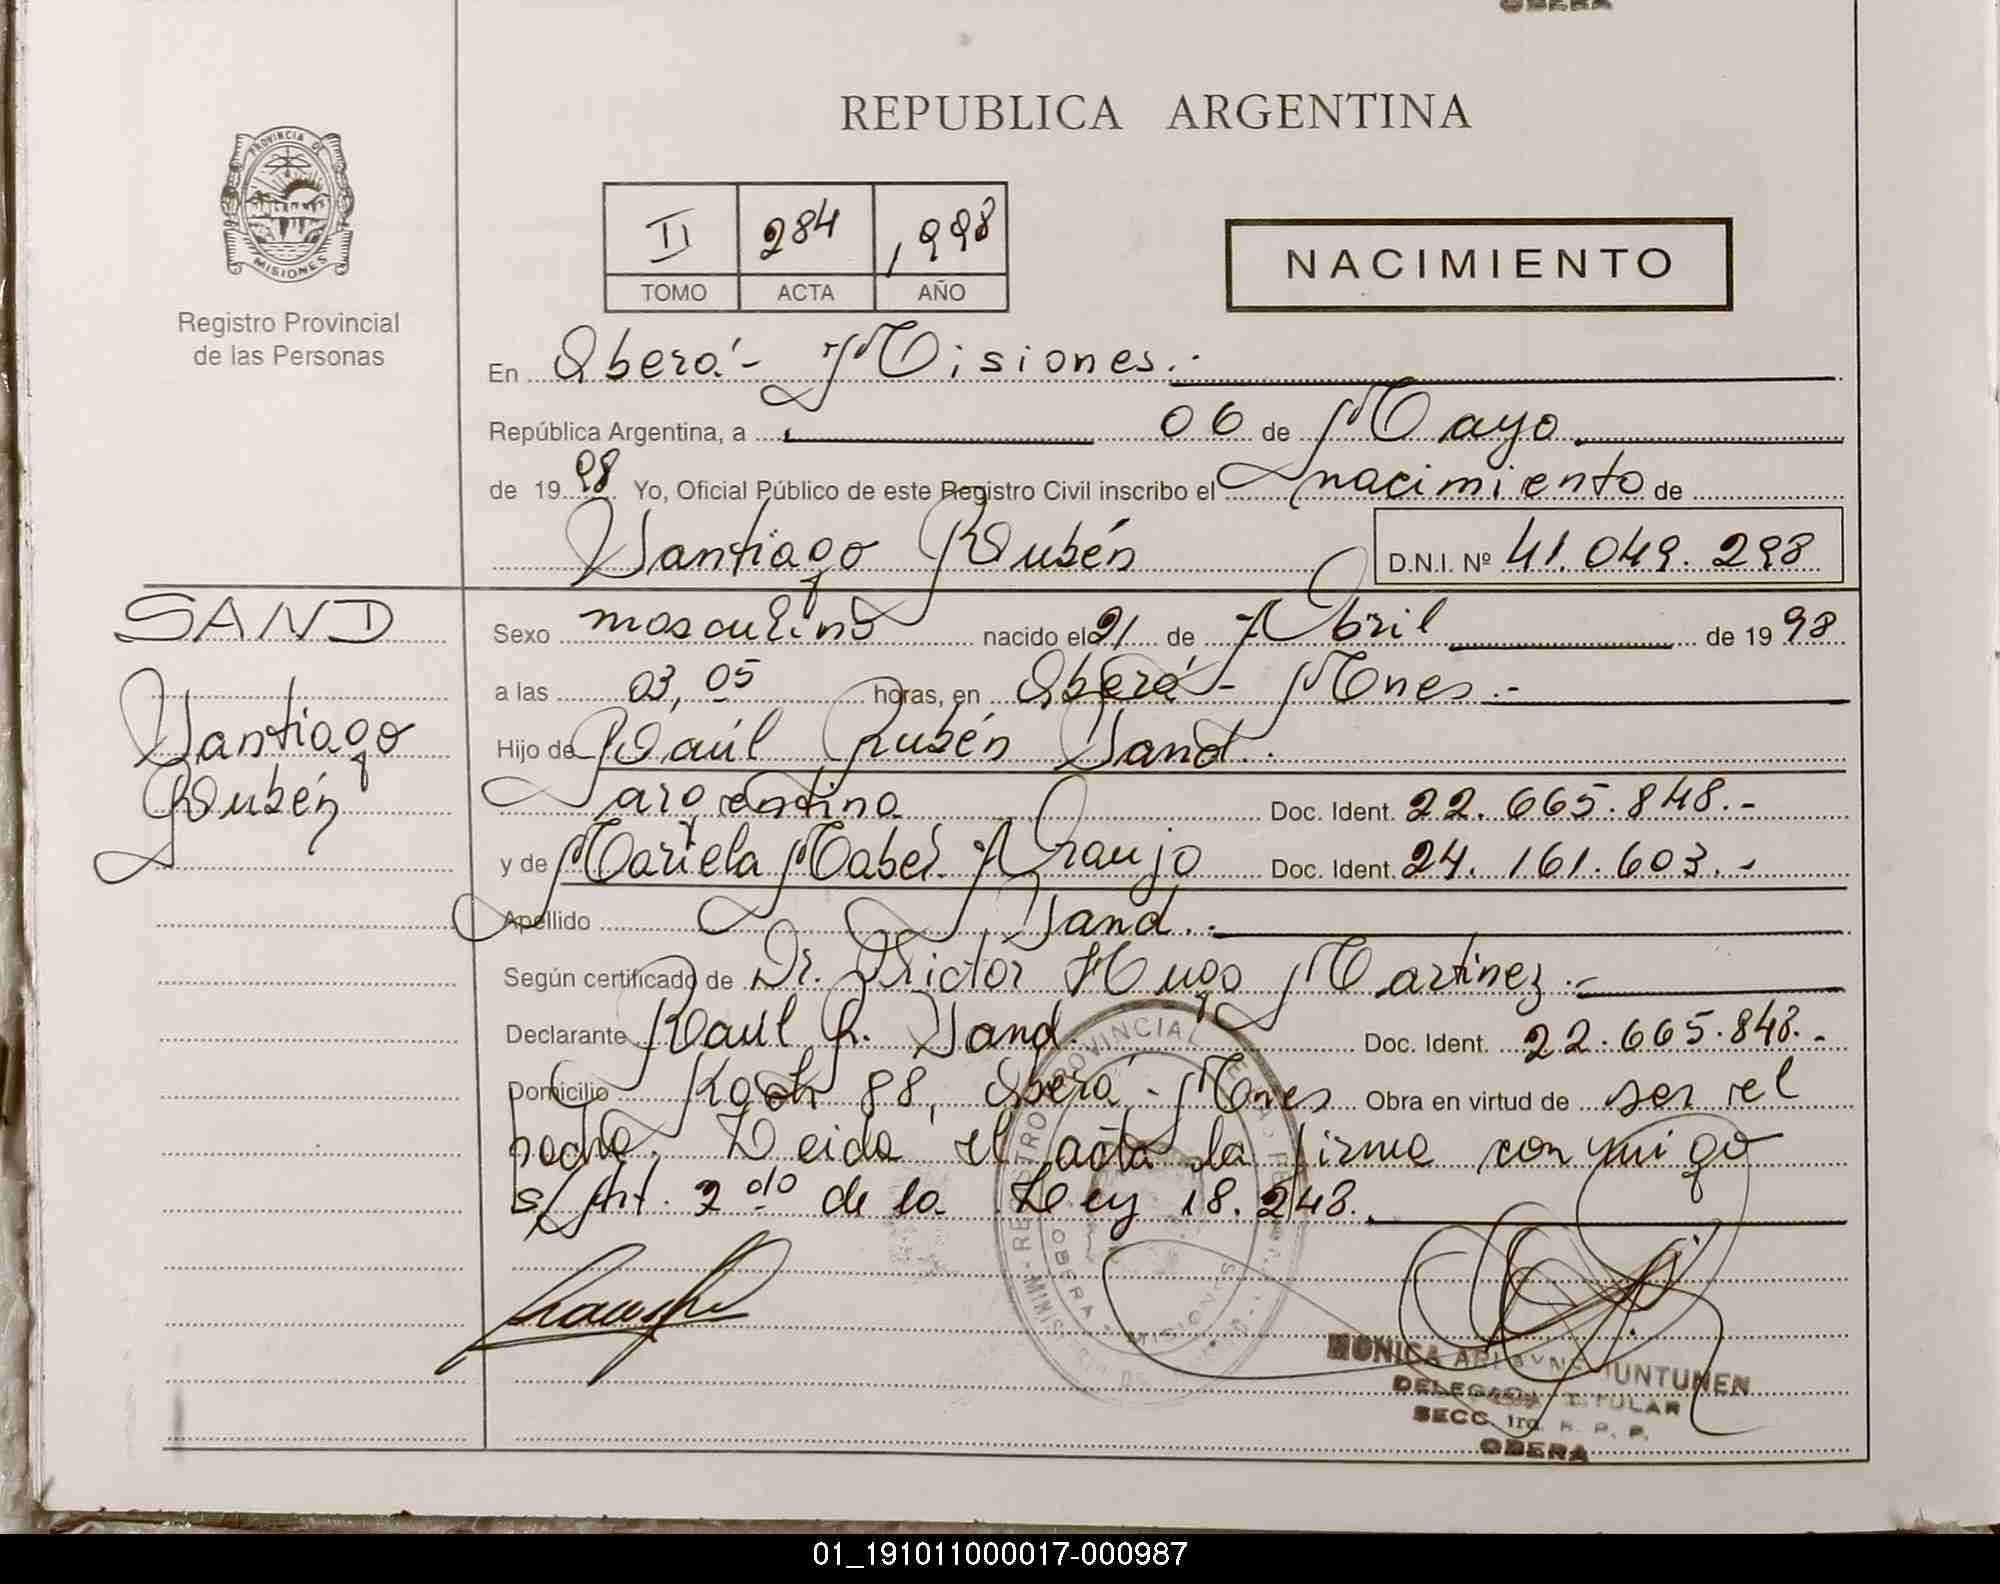 OBERA
REPUBLICA ARGENTINA
PROVINCIA DE
MISIONES
Registro Provincial
de las Personas
II 284 1998
TOMO ACTA AÑO
NACIMIENTO
En Oberá - Misiones.-
República Argentina, a 06 de Mayo
de 1998 Yo, Oficial Público de este Registro Civil inscribo el nacimiento de
Santiago Rubén D.N.I. Nº 41.049.298
SAND
Santiago
Rubén
Sexo masculino nacido el 21 de Abril de 1998
a las 03,05 horas, en Oberá - Mnes.-
Hijo de Raúl Rubén Sand.
argentino Doc. Ident. 22.665.848.-
y de Mariela Mabel Araujo Doc. Ident. 24.161.603.-
Apellido Sand.-
Según certificado de Dr. Victor Hugo Martinez.-
Declarante Raul R. Sand. Doc. Ident. 22.665.848.-
Domicilio 88, Oberá - Mnes Obra en virtud de ser el
padre. Leida el acta la firma conmigo
s/Art. 2do de la Ley 18.248.
REGISTRO PROVINCIAL DE LAS
OBERA - MISIONES
MONICA UNTUNEN
DELEGADA TITULAR
SECC. 1ra. R. P. P.
OBERA
01_191011000017-000987